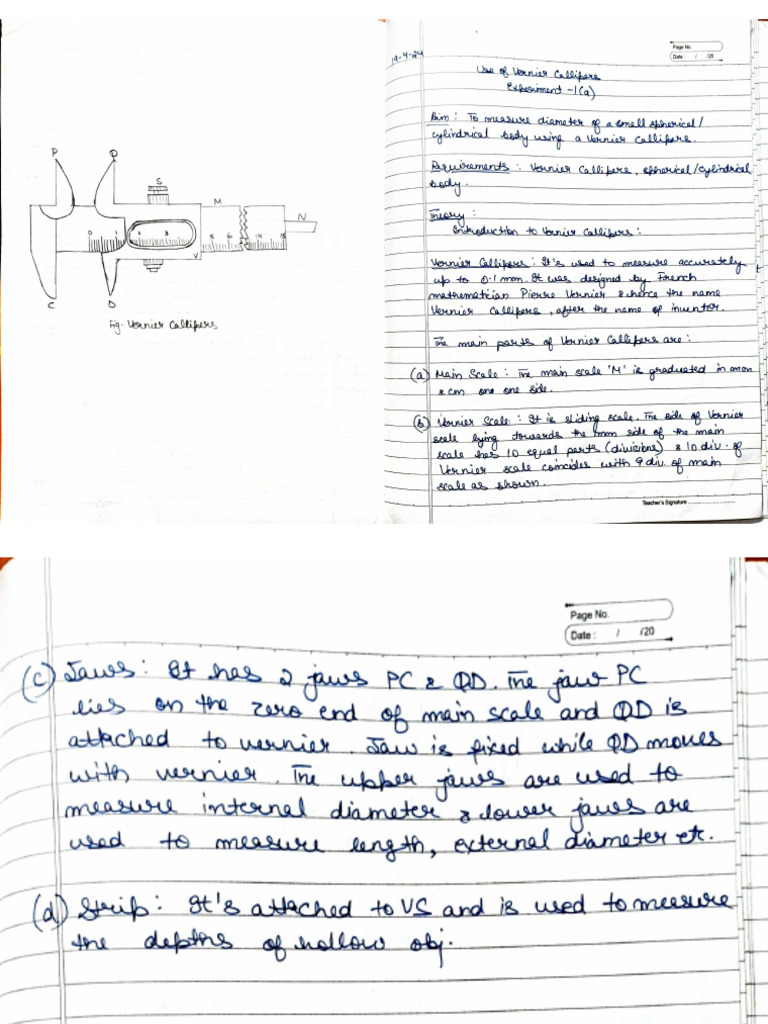 P
Q
S
M
N
0
1
2
3
5
6
14
15
V
C
D
Fig- Vernier Callipers
Page No.
Date : / /20
19-4-24
Use of Vernier Callipers
Experiment -1(a)
Aim : To measure diameter of a small spherical /
cylindrical body using a Vernier Callipers.
Requirements : Vernier Callipers, spherical/cylindrical
body.
Theory :
Introduction to Vernier Callipers :
Vernier Callipers : It's used to measure accurately
up to 0.1 mm. It was designed by French
mathematician Pierre Vernier & hence the name
Vernier Callipers, after the name of inventor.
The main parts of Vernier Callipers are :
(a) Main Scale : The main scale 'M' is graduated in
& cm one one side.
(b) Vernier Scale : It is sliding scale. The side of Vernier
scale lying towards the mm side of the main
scale has 10 equal parts (divisions) & 10 div. of
Vernier scale coincides with 9 div. of main
scale as shown.
Teacher's Signature
Page No.
Date : / /20
(c) Jaws : It has 2 jaws PC & QD. The jaw PC
lies on the zero end of main scale and QD is
attached to vernier. Jaw is fixed while QD moves
with vernier. The upper jaws are used to
measure internal diameter & lower jaws are
used to measure length, external diameter etc.
(d) Strip : It's attached to VS and is used to measure
the depths of hollow obj.